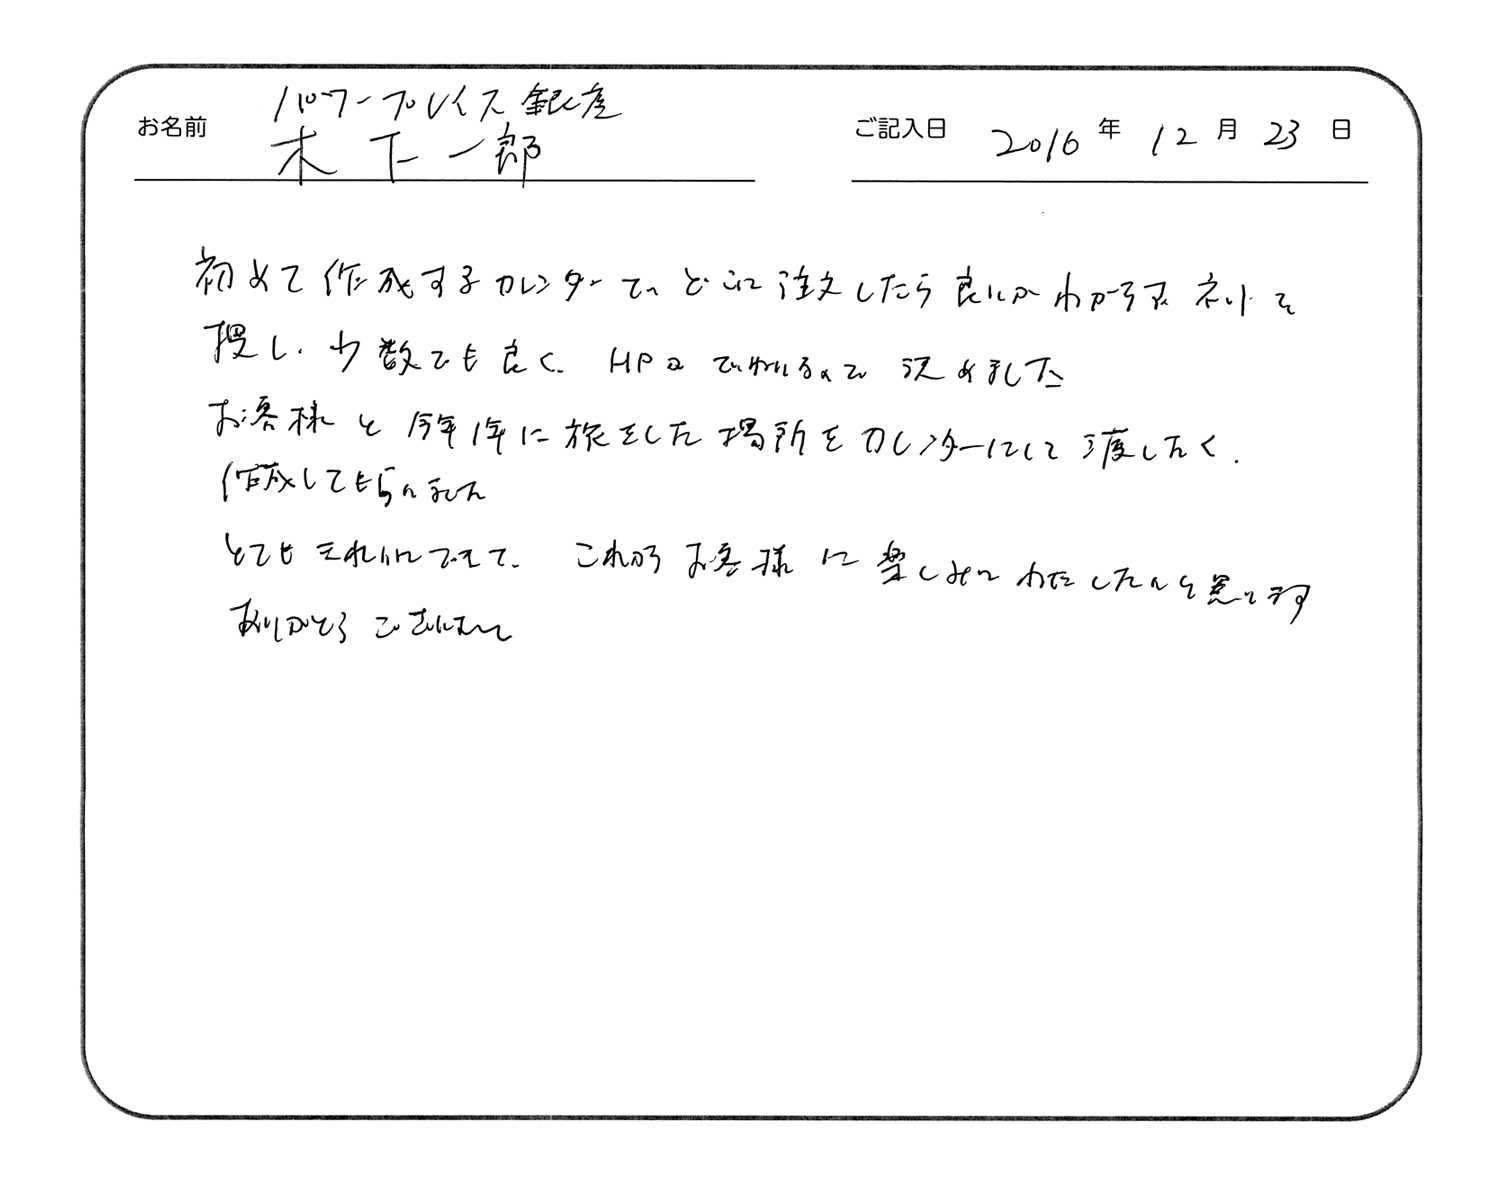 パワープレイス銀座
お名前 木下一郎 ご記入日 2016年12月23日
初めて作成するカレンダーで、どこに注文したら良いかわからず ネットで
捜し、少数でも良く、HPの ので 決めました
お客様と今年1年に旅をした場所をカレンダーにして渡したく、
作成してもらいました
とてもきれいにできて、これからお客様に楽しみに わたしたいと思います
ありがとうございました